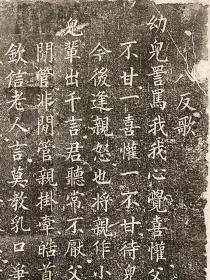 八反歌
幼兒詈罵我我心覺喜懽父
不甘一喜懽一不甘待兒
今後逢親怒也將親作小
兒輩出千言君聽常不厭父
閒管非閒管親掛牽皓首
欽信老人言莫教乳口爭